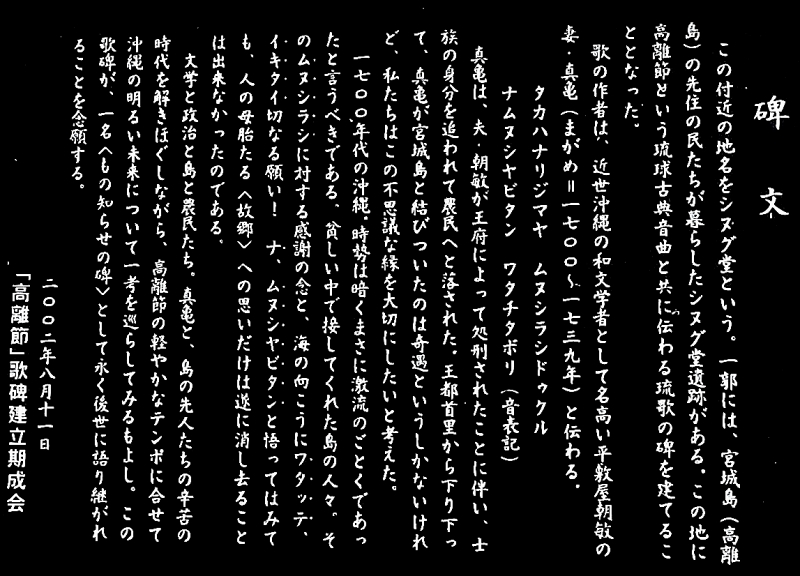 碑文
この付近の地名をシヌグ堂という。一郭には、宮城島(高離
島)の先住の民たちが暮らしたシヌグ堂遺跡がある。この地に
高離節という琉球古典音曲と共に伝わる琉歌の碑を建てるこ
ととなった。
歌の作者は、近世沖縄の和文学者として名高い平敷屋朝敏の
妻・真亀(まがめ=一七〇〇~一七三九年)と伝わる。
タカハナリジマヤ ムヌシラシドゥクル
ナムヌシヤビタン ワタチタボリ(音表記)
真亀は、夫・朝敏が王府によって処刑されたことに伴い、士
族の身分を追われて農民へと落された。王都首里から下り下っ
て、真亀が宮城島と結びついたのは奇遇というしかないけれ
ど、私たちはこの不思議な縁を大切にしたいと考えた。
一七〇〇年代の沖縄。時勢は暗くまさに激流のごとくであっ
たと言うべきである、貧しい中で接してくれた島の人々。そ
のムヌシラシに対する感謝の念と、海の向こうにワタッテ、
イキタイ切なる願い! ナ、ムヌシヤビタンと悟ってはみて
も、人の母胎たる〈故郷〉への思いだけは遂に消し去ること
は出来なかったのである。
文学と政治と島と農民たち。真亀と、島の先人たちの辛苦の
時代を解きほぐしながら、高離節の軽やかなテンポに合せて
沖縄の明るい未来について一考を巡らしてみるもよし。この
歌碑が、一名〈もの知らせの碑〉として永く後世に語り継がれ
ることを念願する。
二〇〇二年八月十一日
「高離節」歌碑建立期成会